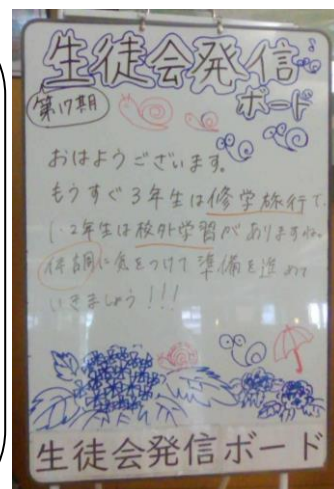 生徒会発信
ボード
第17期
おはようございます。
もうすぐ3年生は修学旅行で、
1・2年生は校外学習がありますね。
体調に気をつけて準備を進めて
いきましょう!!!
生徒会発信ボード